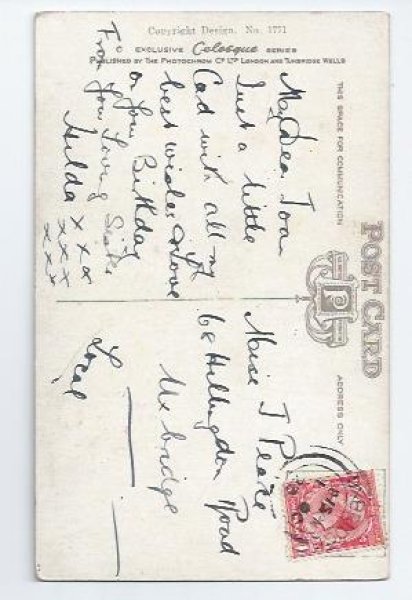 Copyright Design. No. 1771
© EXCLUSIVE Celesque SERIES
PUBLISHED BY THE PHOTOCHROM Co LTD LONDON AND TUNBRIDGE WELLS
POST CARD
THIS SPACE FOR COMMUNICATION
ADDRESS ONLY
My Dear Joan
Just a little
Card with all my
best wishes & love
on your Birthday
From your loving Sister
Hilda x x x
x x x
x x x
J
68 Hillingdon Road
Uxbridge
Local